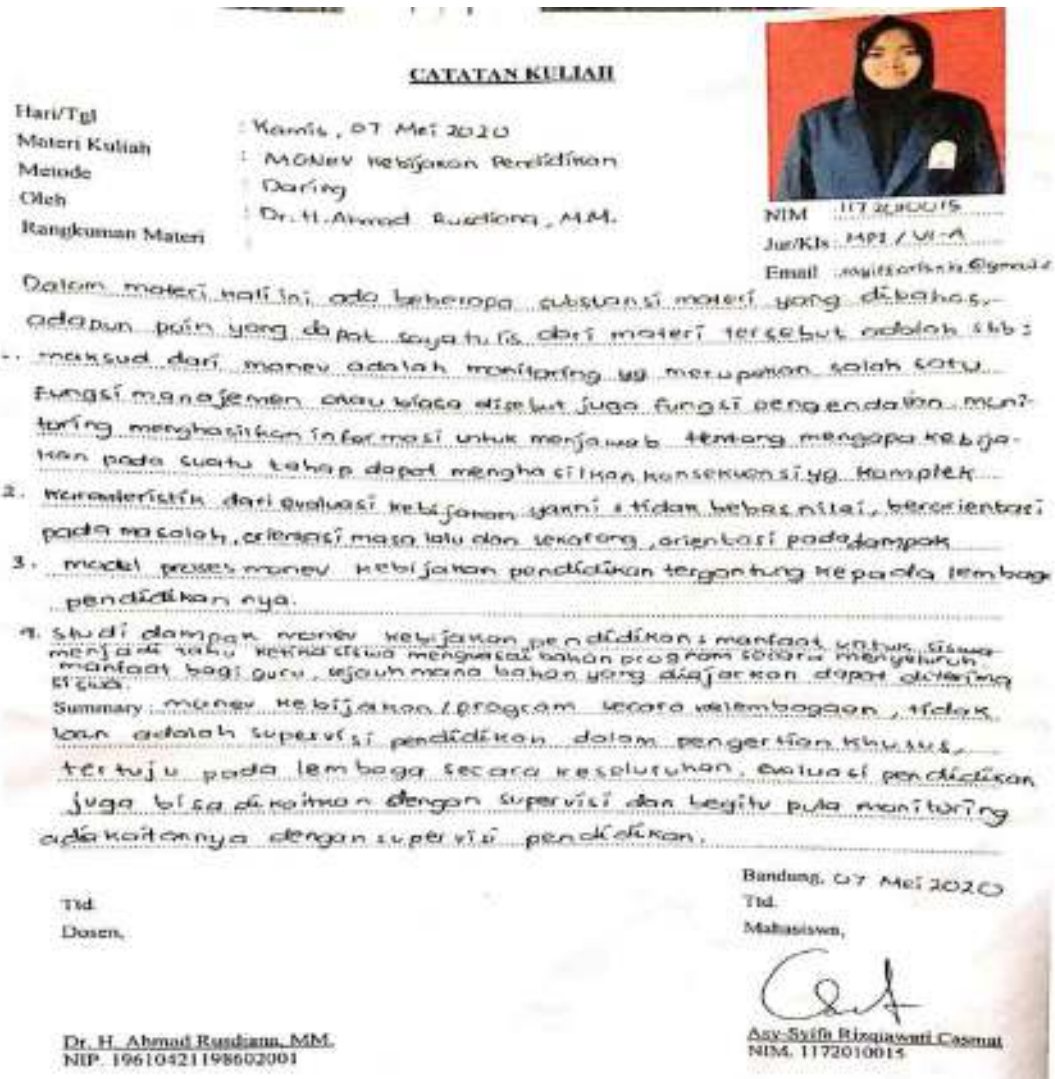 CATATAN KULIAH
Hari/Tgl : Kamis, 07 Mei 2020
Materi Kuliah : MONEV Kebijakan Pendidikan
Metode : Daring
Oleh : Dr. H. Ahmad Rusdiana, M.M.
Rangkuman Materi :
NIM
Jur/Kls : MPI / VI-A
Email :
Dalam materi kali ini ada beberapa substansi materi yang dibahas,
adapun poin yang dapat saya tulis dari materi tersebut adalah sbb :
maksud dari monev adalah monitoring yg merupakan salah satu
Fungsi manajemen atau biasa disebut juga fungsi pengendalian. moni-
toring menghasilkan informasi untuk menjawab tentang mengapa kebija-
kan pada suatu tahap dapat menghasilkan konsekuensi yg komplek
2. karakteristik dari evaluasi kebijakan yakni : tidak bebas nilai, berorientasi
pada masalah, orientasi masa lalu dan sekarang, orientasi pada dampak
3. model proses monev kebijakan pendidikan tergantung kepada lembaga
pendidikan nya.
4. Studi dampak monev kebijakan pendidikan : manfaat untuk siswa
menjadi tahu ketika siswa menguasai bahan program secara menyeluruh
manfaat bagi guru, sejauh mana bahan yang diajarkan dapat diterima
siswa.
Summary : monev kebijakan / program secara kelembagaan, tidak
lain adalah supervisi pendidikan dalam pengertian khusus,
tertuju pada lembaga secara keseluruhan. evaluasi pendidikan
juga bisa dikaitkan dengan supervisi dan begitu pula monitoring
ada kaitannya dengan supervisi pendidikan.
Bandung, 07 Mei 2020
Ttd.
Dosen,
Ttd.
Mahasiswa,
Dr. H. Ahmad Rusdiana, MM.
NIP. 196104211986021001
Asy-Syifa Rizqiawati Casmat
NIM. 1172010015